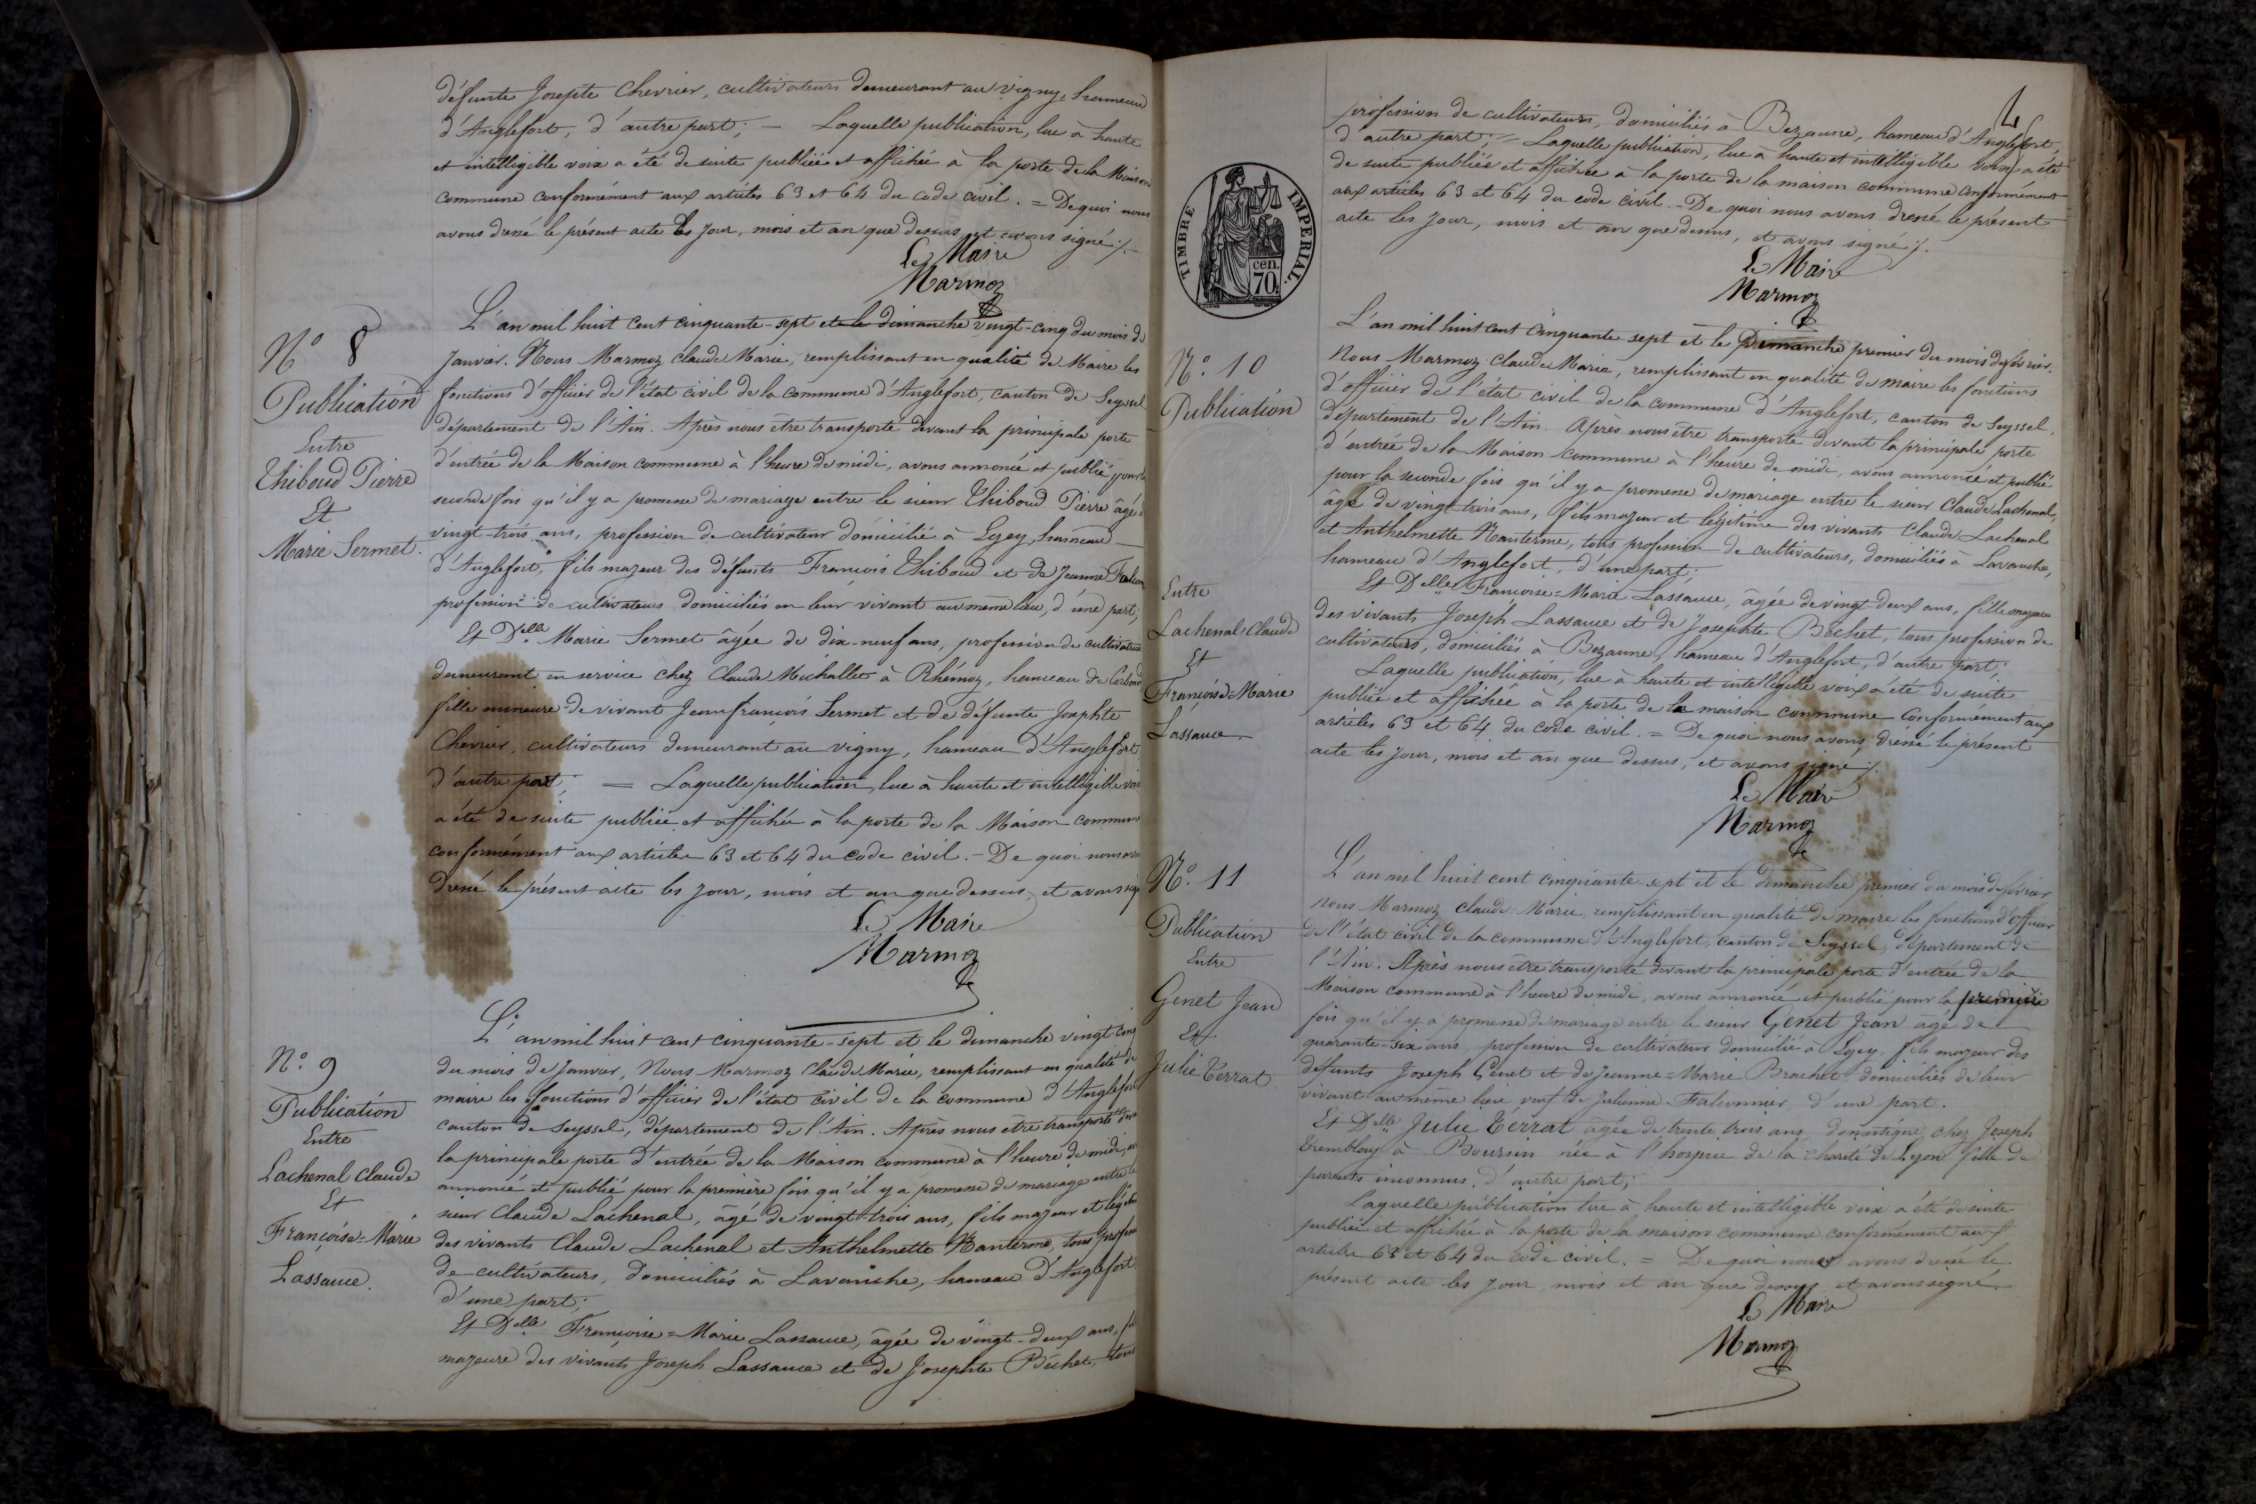 défunte Josephte Chevrier, cultivateurs demeurant au vigny, hameau
d'Anglefort, d'autre part; — Laquelle publication, lue à haute
et intelligible voix a été de suite publiée et affichée à la porte de la Maison
commune conformément aux articles 63 et 64 du code civil. = De quoi nous
avons dressé le présent acte les jour, mois et an que dessus et avons signé ./.
Le Maire
Marmoz
N° 8
Publication
Entre
Thiboud Pierre
Et
Marie Sermet.
L'an mil huit cent cinquante-sept et le dimanche vingt-cinq du mois de
Janvier. Nous Marmoz claude Marie, remplissant en qualité de Maire les
fonctions d'officier de l'état civil de la commune d'Anglefort, canton de Seyssel
département de l'Ain. Après nous être transporté devant la principale porte
d'entrée de la Maison commune à l'heure de midi, avons annoncé et publié pour la
seconde fois qu'il y a promesse de mariage entre le sieur Thiboud Pierre âgé de
vingt-trois ans, profession de cultivateur domicilié à Lyey, hameau
d'Anglefort, fils majeur des défunts François Thiboud et de Jeanne
profession de cultivateurs domiciliés en leur vivant au même lieu, d'une part;
Et Delle Marie Sermet âgée de dix-neuf ans, profession de cultivateur
demeurant en service chez Claude Michallet à Rhémoz, hameau de Corbonod
fille mineure de vivant Jean françois Sermet et de défunte Josephte
Chevrier, cultivateurs demeurant au vigny, hameau d'Anglefort
d'autre part; = Laquelle publication, lue à haute et intelligible voix
a été de suite publiée et affichée à la porte de la Maison commune
conformément aux articles 63 et 64 du code civil. - De quoi nous avons
dressé le présent acte les jour, mois et an que dessus, et avons signé
Le Maire
Marmoz
N° 9
Publication
Entre
Lachenal claude
Et
Françoise=Marie
Lassauce.
L'an mil huit cent cinquante-sept et le dimanche vingt cinq
du mois de Janvier, Nous Marmoz Claude Marie, remplissant en qualité de
maire les fonctions d'officier de l'état civil de la commune d'Anglefort
canton de Seyssel, département de l'Ain. Après nous être transporté devant
la principale porte d'entrée de la Maison commune à l'heure de midi, avons
annoncé et publié pour la première fois qu'il y a promesse de mariage entre le
sieur Claude Lachenal, âgé de vingt-trois ans, fils majeur et légitime
des vivants Claude Lachenal et Anthelmette Nanterme, tous profession
de cultivateurs, domiciliés à Lavanche, hameau d'Anglefort
d'une part;
Et Delle Françoise=Marie Lassauce, âgée de vingt-deux ans, fille
majeure des vivants Joseph Lassauce et de Josephte Béchet, tous
4
profession de cultivateurs, domiciliés à Bezaune, hameau d'Anglefort,
d'autre part; = Laquelle publication, lue à haute et intelligible voix a été
de suite publiée et affichée à la porte de la maison commune conformément
aux articles 63 et 64 du code civil. - De quoi nous avons dressé le présent
acte les jour, mois et an que dessus, et avons signé ./.
Le Maire
Marmoz
TIMBRE IMPERIAL.
cen.
70.
N° 10
Publication
Entre
Lachenal Claude
Et
Françoise Marie
Lassauce
L'an mil huit cent cinquante sept et le Dimanche premier du mois de février.
Nous Marmoz Claude Marie, remplissant en qualité de maire les fonctions
d'officier de l'état civil de la commune d'Anglefort, canton de Seyssel,
département de l'Ain. Après nous être transporté devant la principale porte
d'entrée de la Maison commune à l'heure de midi, avons annoncé et publié
pour la seconde fois qu'il y a promesse de mariage entre le sieur Claude Lachenal,
âgé de vingt trois ans, fils majeur et légitime des vivants Claude Lachenal
et Anthelmette Nanterme, tous profession de cultivateurs, domiciliés à Lavanche,
hameau d'Anglefort, d'une part;
Et Delle Françoise=Marie Lassauce, âgée de vingt deux ans, fille majeure
des vivants Joseph Lassauce et de Josephte Béchet, tous profession de
cultivateurs, domiciliés à Bezaune, hameau d'Anglefort, d'autre part;
Laquelle publication, lue à haute et intelligible voix a été de suite
publiée et affichée à la porte de la maison commune conformément aux
articles 63 et 64 du code civil. = De quoi nous avons dressé le présent
acte les jour, mois et an que dessus, et avons signé ./.
Le Maire
Marmoz
N° 11
Publication
Entre
Genet Jean
Et
Julie Terrat
L'an mil huit cent cinquante-sept et le dimanche premier du mois de février
nous Marmoz Claude-Marie, remplissant en qualité de maire les fonctions d'officier
de l'état civil de la commune d'Anglefort, canton de Seyssel, département de
l'Ain. Après nous être transporté devant la principale porte d'entrée de la
Maison commune à l'heure de midi, avons annoncé et publié pour la première
fois qu'il y a promesse de mariage entre le sieur Genet Jean âgé de
quarante-six ans, profession de cultivateur domicilié à Lyey, fils majeur des
défunts Joseph Genet et de Jeanne=Marie Brachet domiciliés de leur
vivant au même lieu veuf de Julienne Falconnier d'une part.
Et Delle Julie Terrat âgée de trente trois ans domestique chez Joseph
Tremblay à Boursin née à l'hospice de la charité de Lyon fille de
parents inconnus, d'autre part;
Laquelle publication lue à haute et intelligible voix a été de suite
publiée et affichée à la porte de la maison commune conformément aux
articles 63 et 64 du code civil. = De quoi nous avons dressé le
présent acte les jour, mois et an que dessus et avons signé
Le Maire
Marmoz